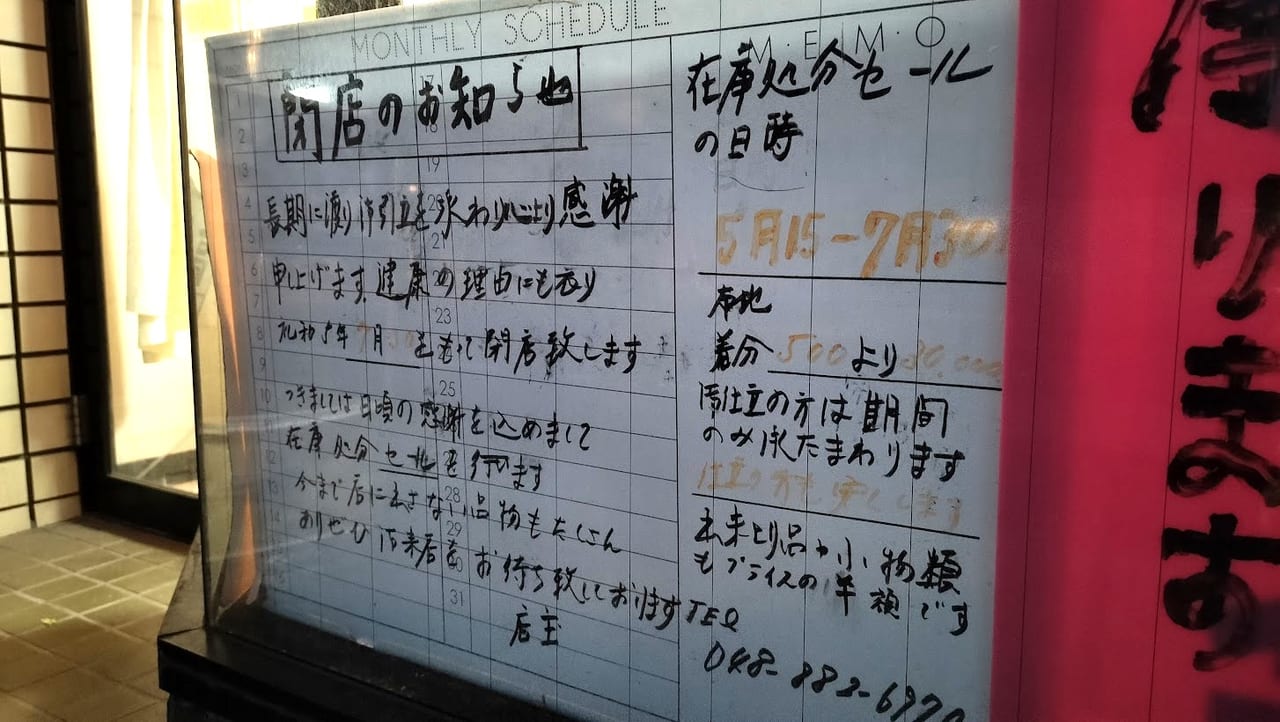 MONTHLY SCHEDULE
M・E・M・O
閉店のお知らせ
長期に渡り御引立を承わり心より感謝
申し上げます。健康の理由にも依り
令和5年7月30をもって閉店致します
つきましては日頃の感謝を込めまして
在庫処分セールを行います
今まで店に出さない品物もたくさん
ありせひ御来店をお待ち致しております
店主
在庫処分セール
の日時
5月15-7月30
布地
着分500より30,000
御仕立の方は期間
のみ承たまわります
仕立の方も安くします
出来上り品や小物類
もプライスの半額です
TEL
048-882-6970
ります